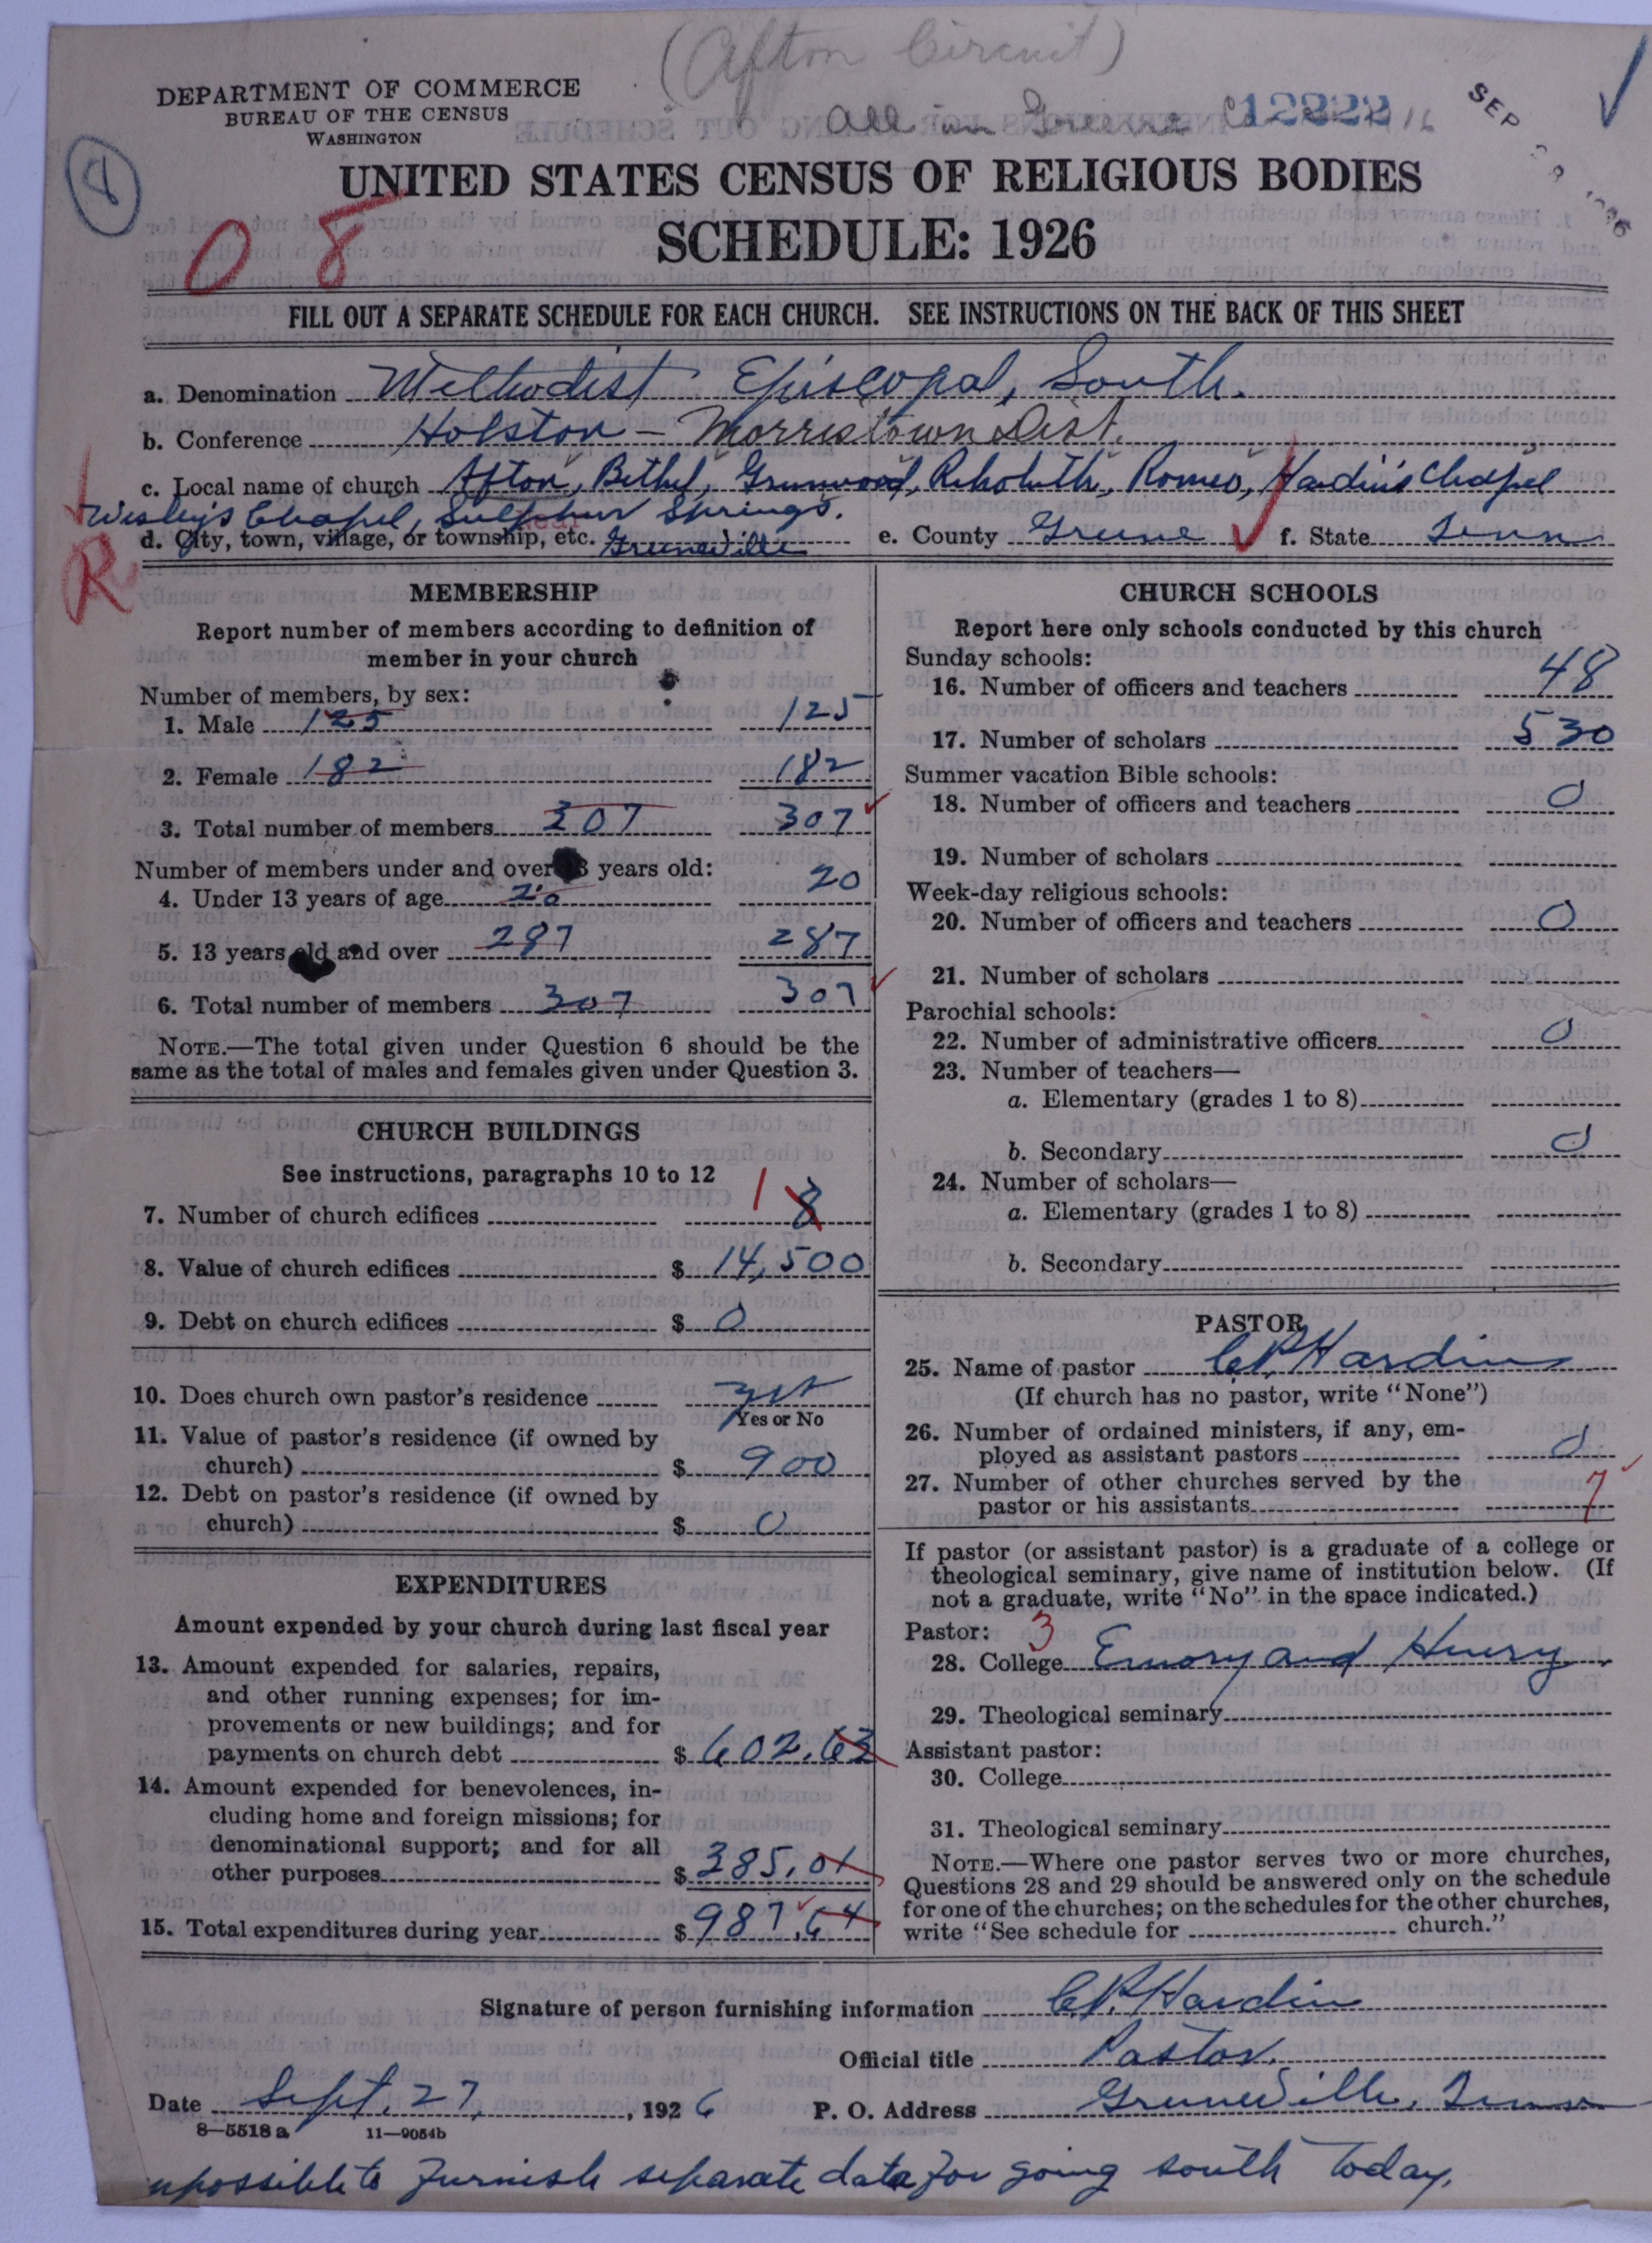 (Afton Circuit)
DEPARTMENT OF COMMERCE
BUREAU OF THE CENSUS
WASHINGTON
All in Greene Co
12822
SEP
8
UNITED STATES CENSUS OF RELIGIOUS BODIES
08
SCHEDULE: 1926
FILL OUT A SEPARATE SCHEDULE FOR EACH CHURCH. SEE INSTRUCTIONS ON THE BACK OF THIS SHEET
a. Denomination Methodist Episcopal, South.
b. Conference Holston - Morristown Dist.
c. Local name of church Afton, Bethel, Greenwood, Rehobuth, Romeo, Hardin's Chapel
Wesley's Chapel, Sulphur Springs.
near
d. City, town, village, or township, etc. Greeneville e. County Greene f. State Tenn
R
MEMBERSHIP
Report number of members according to definition of
member in your church
Number of members, by sex:
1. Male 125 125
2. Female 182 182
3. Total number of members 307 307
Number of members under and over 13 years old:
4. Under 13 years of age 20 20
5. 13 years old and over 287 287
6. Total number of members 307 307
NOTE.—The total given under Question 6 should be the
same as the total of males and females given under Question 3.
CHURCH BUILDINGS
See instructions, paragraphs 10 to 12
7. Number of church edifices 1 8
8. Value of church edifices $ 14,500
9. Debt on church edifices $ 0
10. Does church own pastor's residence yes
Yes or No
11. Value of pastor's residence (if owned by
church) $ 900
12. Debt on pastor's residence (if owned by
church) $ 0
EXPENDITURES
Amount expended by your church during last fiscal year
13. Amount expended for salaries, repairs,
and other running expenses; for im-
provements or new buildings; and for
payments on church debt $ 602.63
14. Amount expended for benevolences, in-
cluding home and foreign missions; for
denominational support; and for all
other purposes $ 385.01
15. Total expenditures during year $ 987.64
CHURCH SCHOOLS
Report here only schools conducted by this church
Sunday schools:
16. Number of officers and teachers 48
17. Number of scholars 530
Summer vacation Bible schools:
18. Number of officers and teachers 0
19. Number of scholars
Week-day religious schools:
20. Number of officers and teachers 0
21. Number of scholars
Parochial schools:
22. Number of administrative officers 0
23. Number of teachers—
a. Elementary (grades 1 to 8)
b. Secondary 0
24. Number of scholars—
a. Elementary (grades 1 to 8)
b. Secondary
PASTOR
25. Name of pastor C.P. Hardin
(If church has no pastor, write "None")
26. Number of ordained ministers, if any, em-
ployed as assistant pastors 0
27. Number of other churches served by the
pastor or his assistants 7
If pastor (or assistant pastor) is a graduate of a college or
theological seminary, give name of institution below. (If
not a graduate, write "No" in the space indicated.)
Pastor: 3
28. College Emory and Henry
29. Theological seminary
Assistant pastor:
30. College
31. Theological seminary
NOTE.—Where one pastor serves two or more churches,
Questions 28 and 29 should be answered only on the schedule
for one of the churches; on the schedules for the other churches,
write "See schedule for church."
Signature of person furnishing information C.P. Hardin
Official title Pastor.
Date Sept. 27, 1926 P. O. Address Greeneville, Tenn
8—5518 a 11—9054b
mpossible to furnish separate data for going south today.